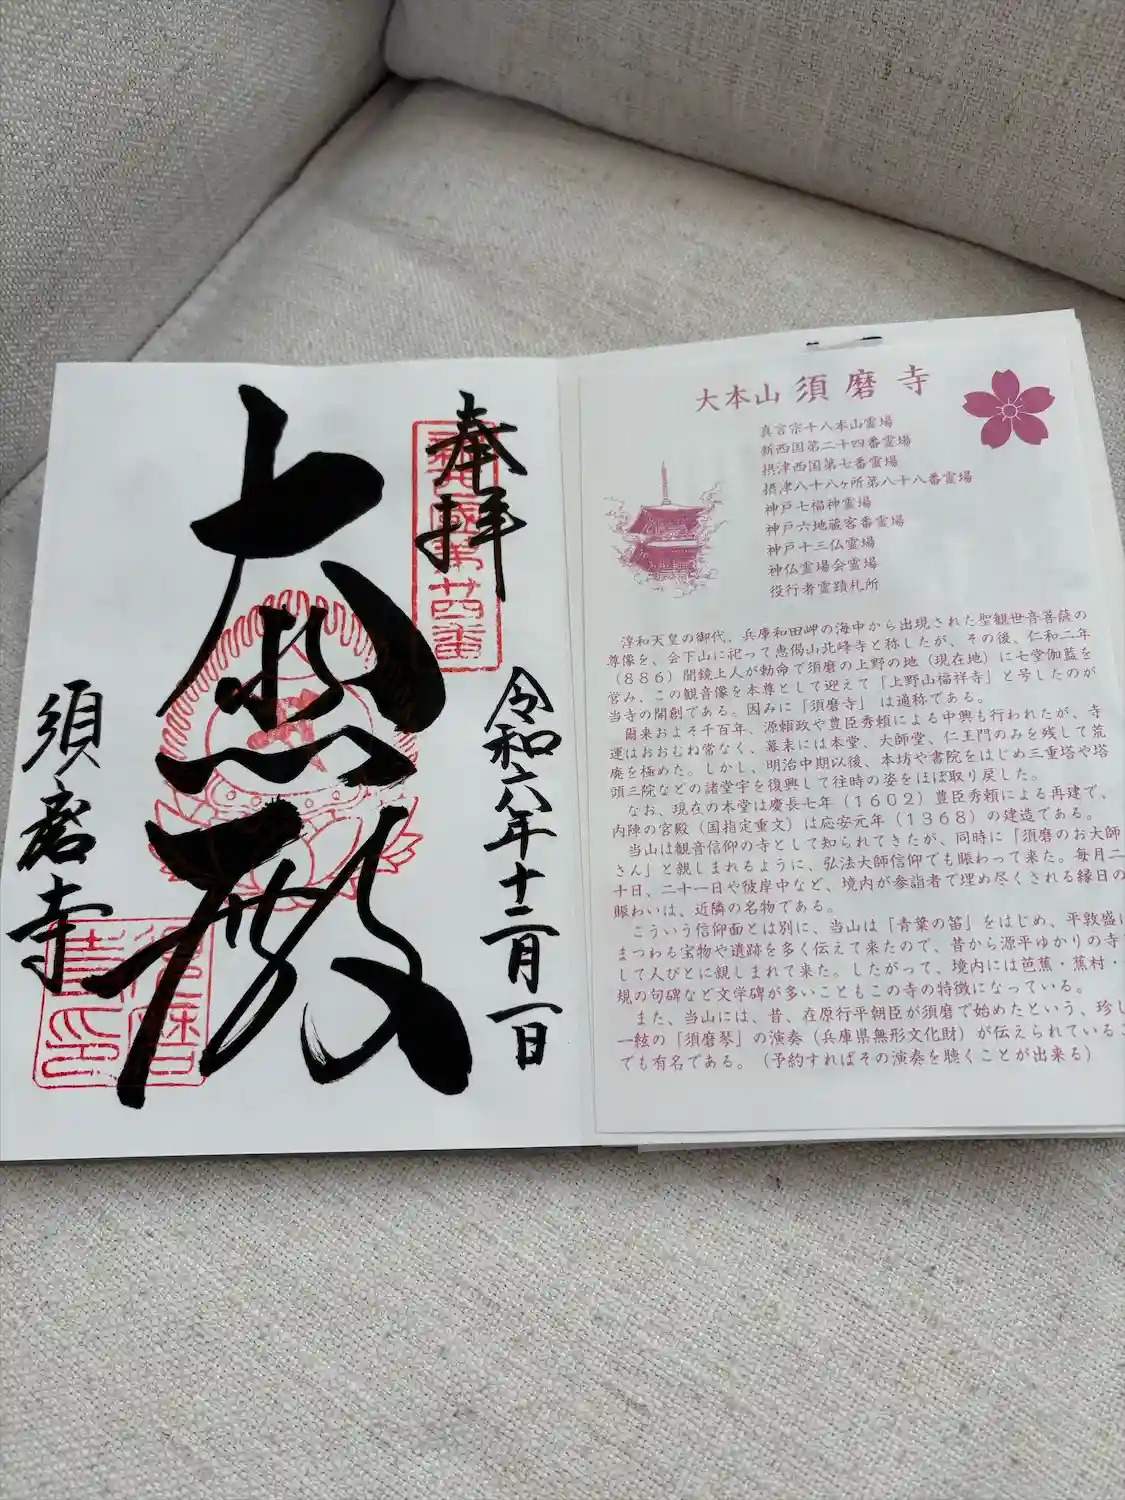 奉拝
新西国第廿四番
令和六年十二月一日
大悲殿
須磨寺
須磨寺印
大本山 須磨寺
真言宗十八本山霊場
新西国第二十四番霊場
摂津西国第七番霊場
摂津八十八ヶ所第八十八番霊場
神戸七福神霊場
神戸六地蔵客番霊場
神戸十三仏霊場
神仏霊場会霊場
役行者霊蹟札所
淳和天皇の御代、兵庫和田岬の海中から出現された聖観世音菩薩の
尊像を、会下山に祀って恵偈山北峰寺と称したが、その後、仁和二年
(886)聞鏡上人が勅命で須磨の上野の地(現在地)に七堂伽藍を
営み、この観音像を本尊として迎えて「上野山福祥寺」と号したのが
当寺の開創である。因みに「須磨寺」は通称である。
爾来およそ千百年、源頼政や豊臣秀頼による中興も行われたが、寺
運はおおむね常なく、幕末には本堂、大師堂、仁王門のみを残して荒
廃を極めた。しかし、明治中期以後、本坊や書院をはじめ三重塔や塔
頭三院などの諸堂宇を復興して往時の姿をほぼ取り戻した。
なお、現在の本堂は慶長七年(1602)豊臣秀頼による再建で、
内陣の宮殿(国指定重文)は応安元年(1368)の建造である。
当山は観音信仰の寺として知られてきたが、同時に「須磨のお大師
さん」と親しまれるように、弘法大師信仰でも賑わって来た。毎月二
十日、二十一日や彼岸中など、境内が参詣者で埋め尽くされる縁日の
賑わいは、近隣の名物である。
こういう信仰面とは別に、当山は「青葉の笛」をはじめ、平敦盛に
まつわる宝物や遺跡を多く伝えて来たので、昔から源平ゆかりの寺
して人びとに親しまれて来た。したがって、境内には芭蕉・蕉村・
規の句碑など文学碑が多いこともこの寺の特徴になっている。
また、当山には、昔、在原行平朝臣が須磨で始めたという、珍し
一絃の「須磨琴」の演奏(兵庫県無形文化財)が伝えられているこ
でも有名である。(予約すればその演奏を聴くことが出来る)